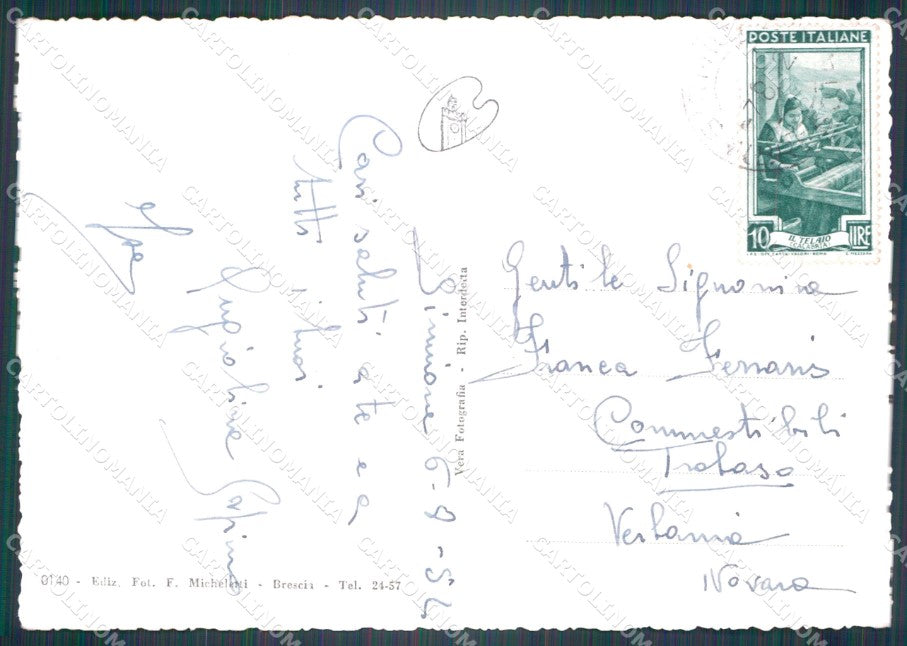 POSTE ITALIANE
10 LIRE
IL TELAIO
CALABRIA
Sirmione 6-9-54
Cari saluti a te e a
tutti i tuoi
Vera Fotografia - Rip. Interdetta
Gentile Signorina
Franca Ferraris
Commestibili
Trobaso
Verbania
Novara
0140 - Ediz. Fot. F. Micheletti - Brescia - Tel. 24-57
CARTOLINOMANIA